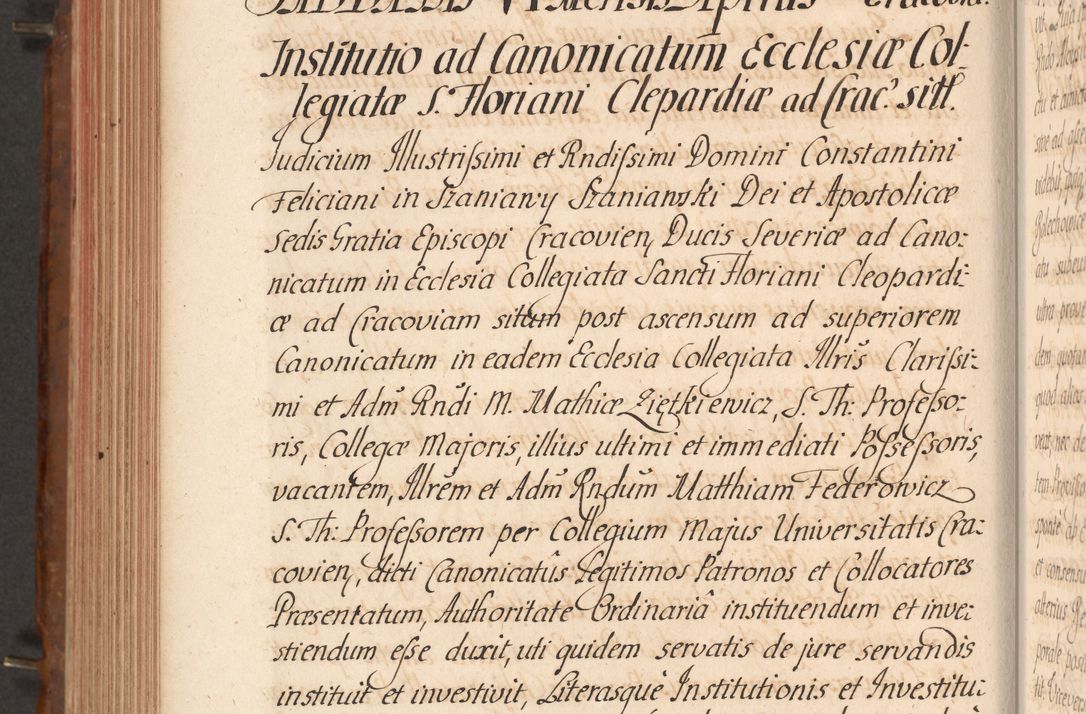 Institutio ad Canonicatum Ecclesiæ Col-
legiatæ S. Floriani Clepardiæ ad Crac. sitt.
Judicium Illustrissimi et Rndissimi Domini Constantini
Feliciani in Szaniawy Szaniawski Dei et Apostolicæ
Sedis Gratia Episcopi Cracovien, Ducis Severiæ ad Cano:
nicatum in Ecclesia Collegiata Sancti Floriani Cleopardi-
æ ad Cracoviam situm post ascensum ad superiorem
Canonicatum in eadem Ecclesia Collegiata Illris Clarissi:
mi et Adm̃ Rndi M. Mathiæ Ziętkiewicz, S. Th: Professo:
ris, Collegæ Majoris, illius ultimi et immediati Possessoris,
vacantem, Illrem et Adm̃ Rndum Matthiam Federowicz
S. Th: Professorem per Collegium Majus Universitatis Cra:
covien, dicti Canonicatûs Legitimos Patronos et Collocatores
Præsentatum, Authoritate Ordinariâ instituendum et inve:
stiendum esse duxit, uti quidem servatis de jure servandis
instituit et investivit, Literasquè Institutionis et Investitu: